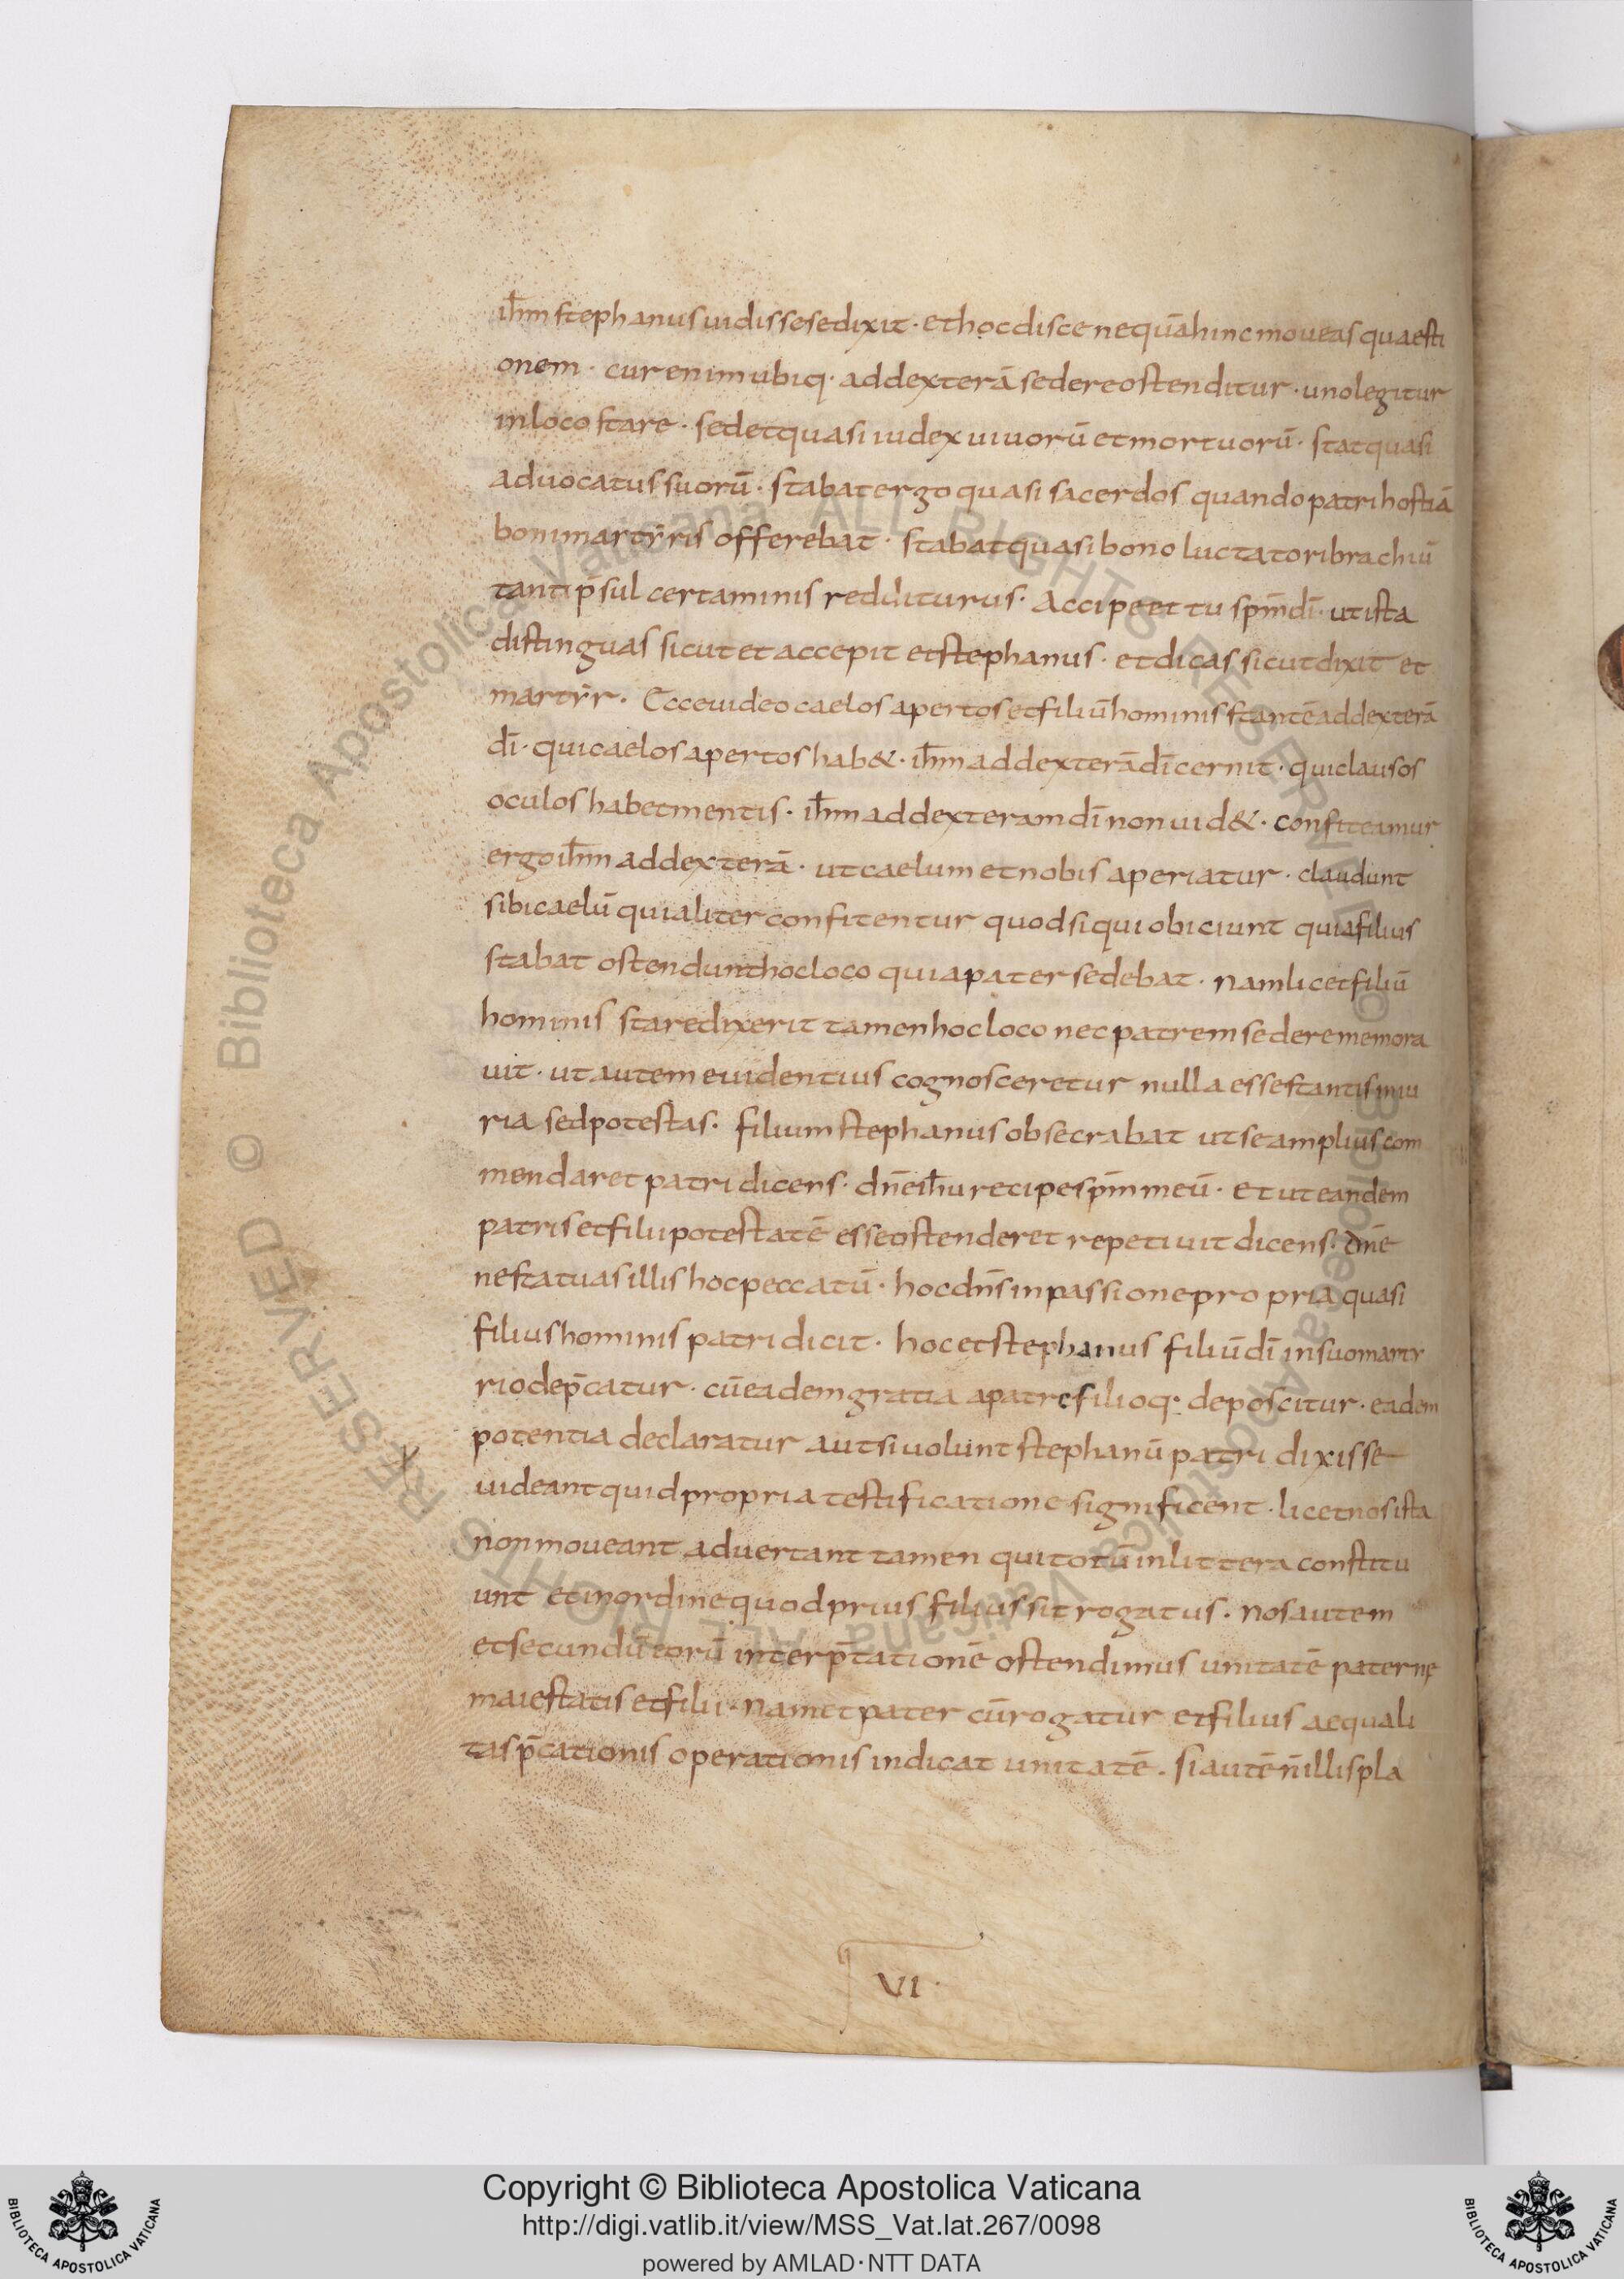 ih̄m stephanus uidisse se dixit · et hoc disce ne quā hinc moueas quaesti
onem · cur enim ubiq · ad dexterā sedere ostenditur · uno legitur
in loco stare · sedet quasi iudex uiuorū et mortuorū · stat quasi
aduocatus suorū · stabat ergo quasi sacerdos quando patri hostiā
boni martyris offerebat · stabat quasi bono luctatori brachiū
tanti p̄sul certaminis redditurus · Accipe et tu sp̄m dī · ut ista
distinguas sicut et accepit et stephanus · et dicas sicut dixit et
martyr · Ecce uideo caelos apertos et filiū hominis stantē ad dexterā
dī · qui caelos apertos hab& · ih̄m ad dexterā dī cernit · qui clausos
oculos habet mentis · ih̄m ad dexteram dī non uid& · confiteamur
ergo ih̄m ad dexterā · ut caelum et nobis aperiatur · claudunt
sibi caelū qui aliter confitentur quod si qui obiciunt quia filius
stabat ostendunt hoc loco quia pater sedebat · nam licet filiū
hominis stare dixerit tamen hoc loco nec patrem sedere memora
uit · ut autem euidentius cognosceretur nulla esse stantis iniu
ria sed potestas · filium stephanus obsecrabat ut se amplius com
mendaret patri dicens · dn̄e ih̄u recipe sp̄m meū · et ut eandem
patris et filii potestatē esse ostenderet repetiuit dicens · dn̄e
ne statuas illis hoc peccatū · hoc dn̄s in passione propria quasi
filius hominis patri dicit · hoc et stephanus filiū dī in suo marty
rio dep̄catur · cū eadem gratia a patre filioq · deposcitur · eadem
potentia declaratur aut si uolunt stephanū patri dixisse
uideant quid propria testificatione significent · licet nos ista
non moueant aduertant tamen qui totū in littera constitu
unt et in ordine quod prius filius sit rogatus · nos autem
et secundū eorū interp̄tationē ostendimus unitatē paternę
maiestatis et filii · nam et pater cū rogatur et filius aequali
tas p̄cationis operationis indicat unitatē · si autē n̄ illis pla
VI ·
Copyright © Biblioteca Apostolica Vaticana
http://digi.vatlib.it/view/MSS_Vat.lat.267/0098
powered by AMLAD·NTT DATA
BIBLIOTECA APOSTOLICA VATICANA
BIBLIOTECA APOSTOLICA VATICANA
© Biblioteca Apostolica Vaticana ALL RIGHTS RESERVED © Biblioteca Apostolica Vaticana ALL RIGHTS RESERVED